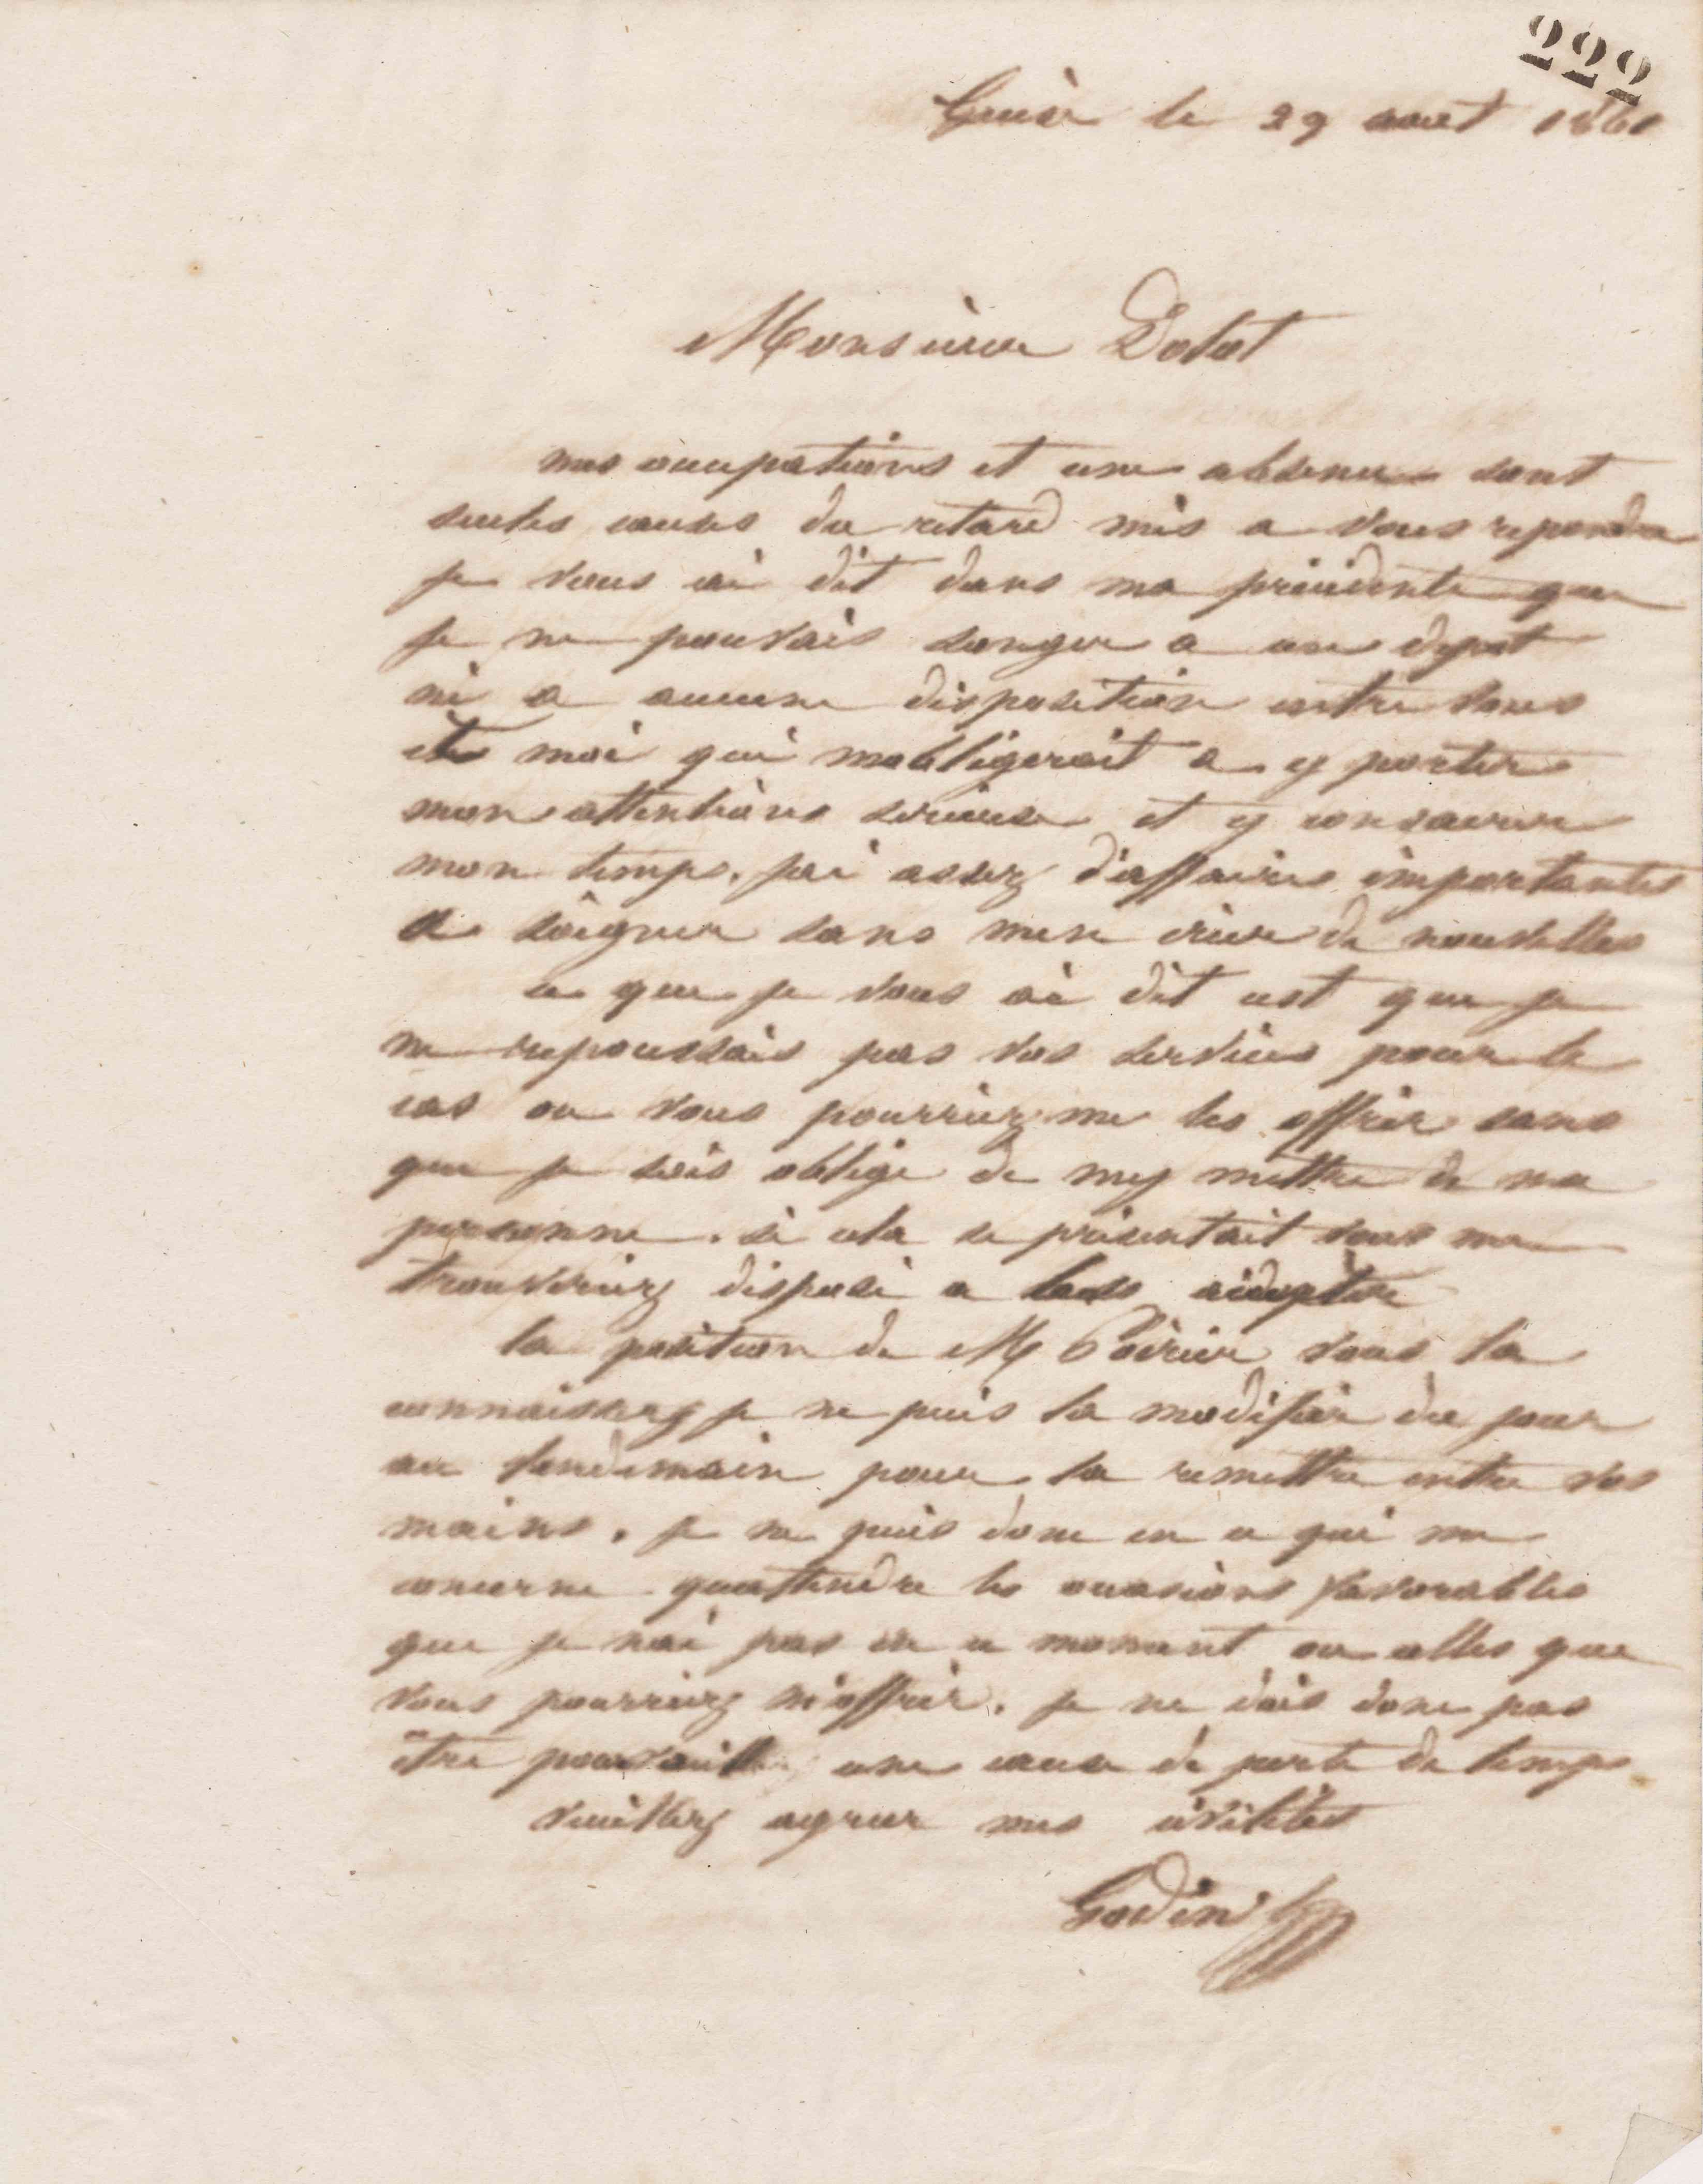 222
Guise le 29 aout 1860
Monsieur Dolot
mes occupations et une absence sont
seules causes du retard mis a vous repondre
je vous ai dit dans ma précédente que
je ne pouvais songer a un depot
ni a aucune disposition entre vous
et moi qui mobligerait a y porter
mon attentions serieuse et y consacrer
mon temps. jai assez d'affaires importantes
a soigner sans men creer de nouvelles
ce que je vous ai dit cest que je
ne repoussais pas vos services pour le
cas ou vous pourriez me les offrir sans
que je sois obligé de my mettre de ma
personne. si cela se présentait vous me
trouveriez disposé a
la position de M Poirier vous la
connaissez je ne puis la modifier du jour
au lendemain pour la remettre entre vos
mains. je ne puis donc en ce qui me
concerne quattendre les occasions favorables
que je nai pas en ce moment ou celles que
vous pourriez m'offrir. je ne dois donc pas
être une cause de perte de temps
veuillez agreer mes civilités
Godin